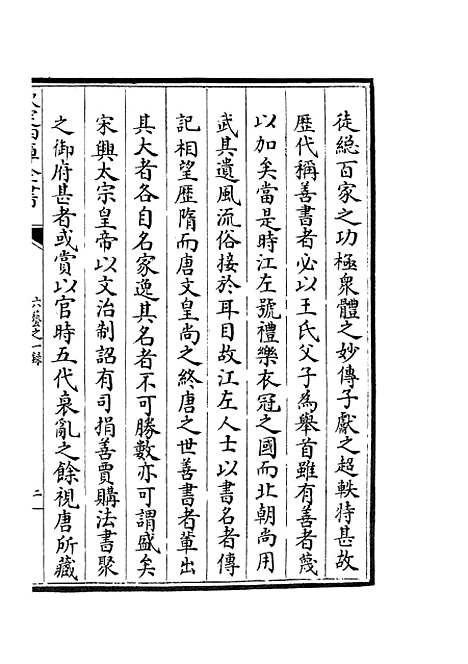 徒總百家之功極衆體之妙傳子獻之超軼特甚故
歴代稱善書者必以王氏父子為舉首雖有善者蔑
以加矣當是時江左號禮樂衣冠之國而北朝尚用
武其遺風流俗接於耳目故江左人士以書名者傳
記相望歴隋而唐文皇尚之終唐之世善書者輩出
其大者各自名家逸其名者不可勝數亦可謂盛矣
宋興太宗皇帝以文治制詔有司捐善賈購法書聚
之御府甚者或賞以官時五代衰亂之餘視唐所藏
六藝之一錄
二